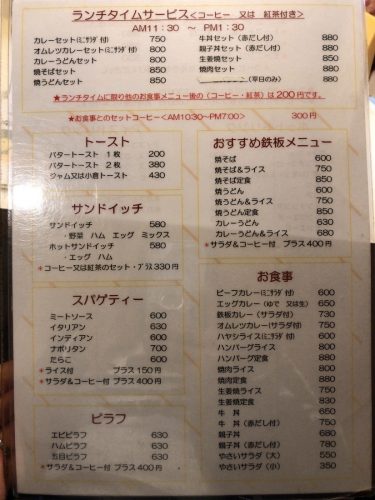 ランチタイムサービス<コーヒー 又は 紅茶付き>
AM11:30 ～ PM1:30
カレーセット(ミニサラダ付) 750
オムレツカレーセット(ミニサラダ付) 800
カレーうどんセット 800
焼そばセット 850
焼うどんセット 850
牛丼セット(赤だし付) 880
親子丼セット(赤だし付) 880
生姜焼セット 880
焼肉セット 880
(平日のみ)
★ランチタイムに限り他のお食事メニュー後の(コーヒー・紅茶)は200円です。
★お食事とのセットコーヒー<AM10:30~PM7:00> 300円
トースト
バタートースト 1枚 200
バタートースト 2枚 380
ジャム又は小倉トースト 430
サンドイッチ
サンドイッチ 580
・野菜 ハム エッグ ミックス
ホットサンドイッチ 580
・エッグ ハム
*コーヒー又は紅茶のセット・プラス330円
スパゲティー
ミートソース 600
イタリアン 630
インディアン 600
ナポリタン 700
たらこ 660
*ライス付 プラス150円
*サラダ&コーヒー付 プラス400円
ピラフ
エビピラフ 630
ハムピラフ 630
五目ピラフ 630
*サラダ&コーヒー付 プラス400円
おすすめ鉄板メニュー
焼そば 600
焼そば&ライス 750
焼そば定食 850
焼うどん 600
焼うどん&ライス 750
焼うどん定食 850
カレーうどん 650
カレーうどん&ライス 800
*サラダ&コーヒー付 プラス400円
お食事
ビーフカレー(ミニサラダ付) 600
エッグカレー(ゆで 又は生) 650
鉄板カレー(サラダ付) 730
オムレツカレー(サラダ付) 750
ハヤシライス(ミニサラダ付) 630
ハンバーグライス 800
ハンバーグ定食 880
焼肉ライス 800
焼肉定食 880
生姜焼ライス 800
生姜焼定食 880
牛丼 650
牛丼(赤だし付) 750
親子丼 680
親子丼(赤だし付) 780
やさいサラダ(大) 550
やさいサラダ(小) 350